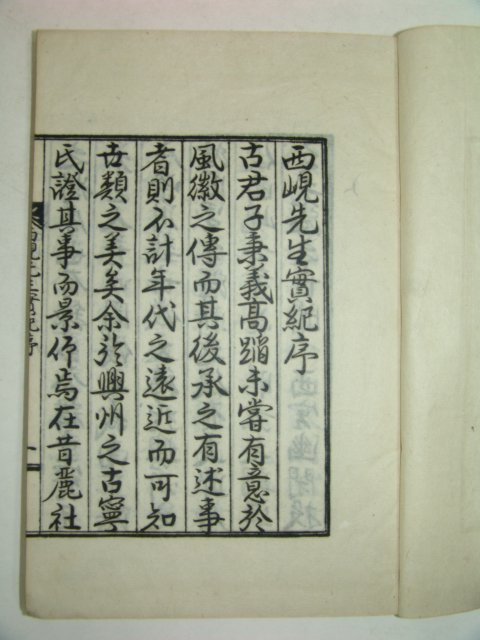 西峴先生實紀序
古君子秉義高蹈未嘗有意於
風徽之傳而其後承之有述事
者則不計年代之遠近而可知
世類之美矣余於興州之古寧
氏證其事而景仰焉在昔麗社
西峴先生實紀序 一